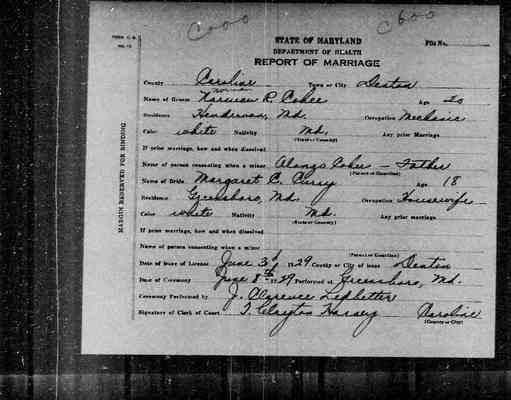 C000 C600
FORM V. S. STATE OF MARYLAND File No.
NO. 12 DEPARTMENT OF HEALTH
REPORT OF MARRIAGE
County Caroline Town or City Denton
Name of Groom R. Coher Age 20
Residence Henderson, Md. Occupation Mechanic
Color white Nativity Md. Any prior Marriage
(State or Country)
If prior marriage, how and when dissolved
Name of person consenting when a minor Alonzo Coher - Father
(Parent or Guardian)
Name of Bride Margaret C. Curry Age 18
Residence Greensboro, Md. Occupation Housewife
Color white Nativity Md. Any prior marriage
(State or Country)
If prior marriage, how and when dissolved
Name of person consenting when a minor
(Parent or Guardian)
Date of Issue of License June 3d 1929 County or City of issue Denton
Date of Ceremony June 8th 1929 Performed at Greensboro, Md.
Ceremony Performed by J. Clarence Ledbetter
Signature of Clerk of Court T. Clayton Horsey Caroline
(County or City)
MARGIN RESERVED FOR BINDING